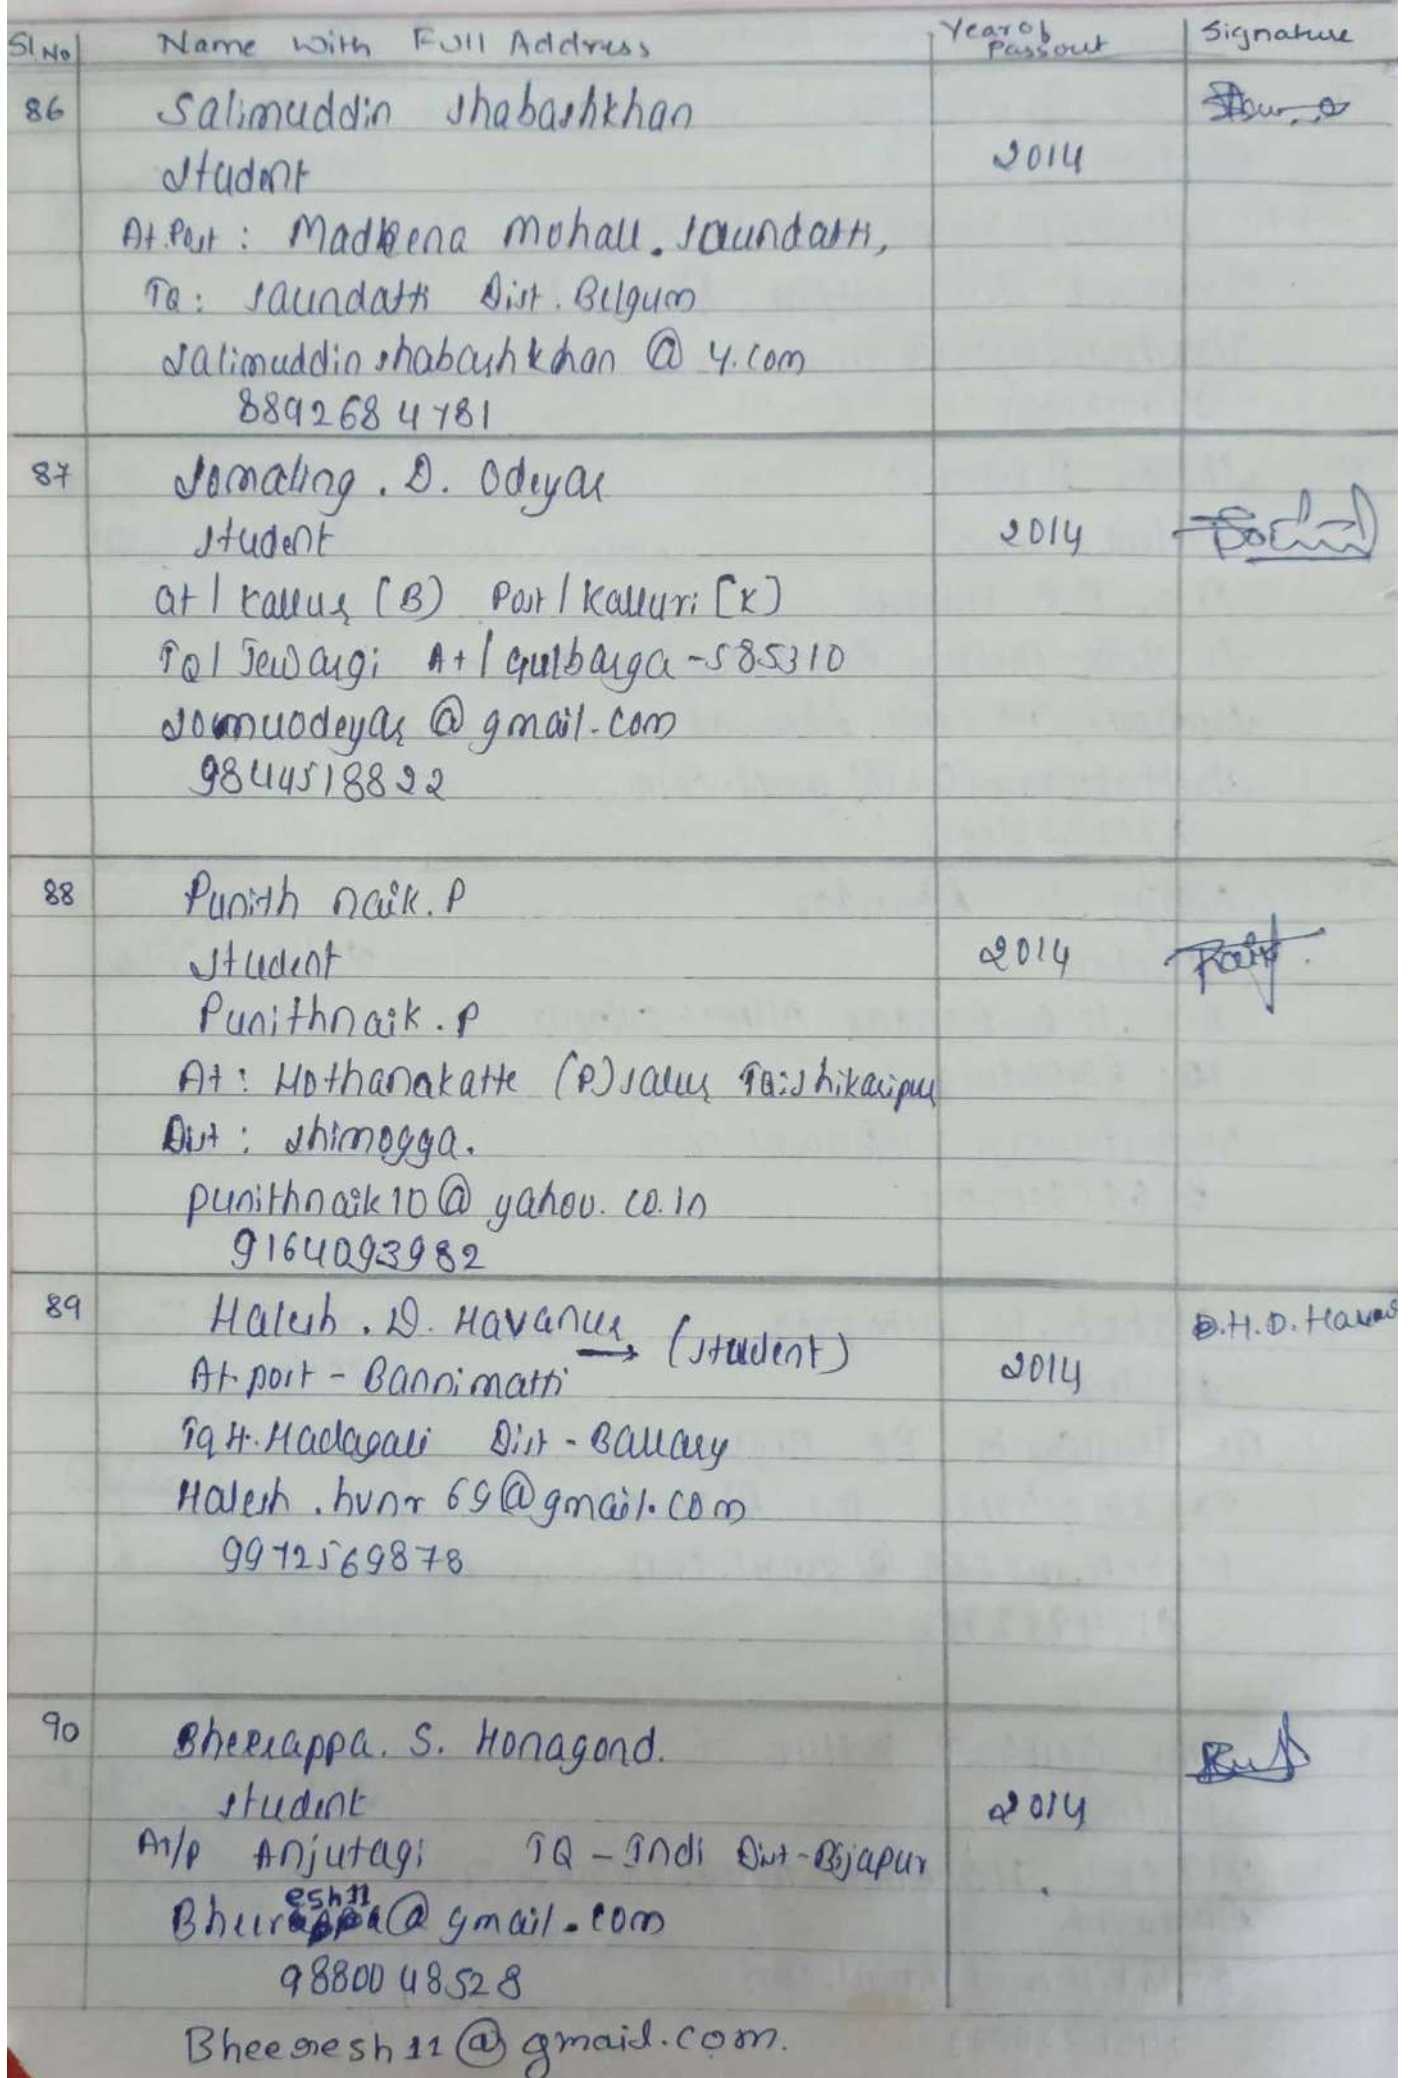 Sl No Name With Full Address Year of Passout Signature
86 Salimuddin Shabashkhan
Student 2014
At. Post : Madeena Mohall. Saundatti,
TQ : Saundatti Dist. Belgum
Salimuddinshabashkhan @ y.com
8892684781
87 Somaling . D. Odeyar
Student 2014
at / Kallur (B) Post / Kalluri [K]
TQ / Jewargi A+ / Gulbarga - 585310
somuodeyar @ gmail.com
9844518822
88 Punith naik. P
Student 2014
Punithnaik . P
At : Hothanakatte (P) Salur TQ: Shikaripur
Dist : Shimogga.
punithnaik10@ yahoo. co.in
9164093982
89 Halesh . D. Havanur → (Student) D.H.D. Havan
At. post - Bannimatti 2014
Tq H. Hadagali Dist - Ballary
Halesh . hvnr 69@gmail.com
9972569878
90 Bheerappa. S. Honagond.
Student 2014
At/p Anjutagi TQ - Indi Dist - Bijapur
Bheeresh11@ gmail.com
9880048528
Bheeresh11@gmail.com.